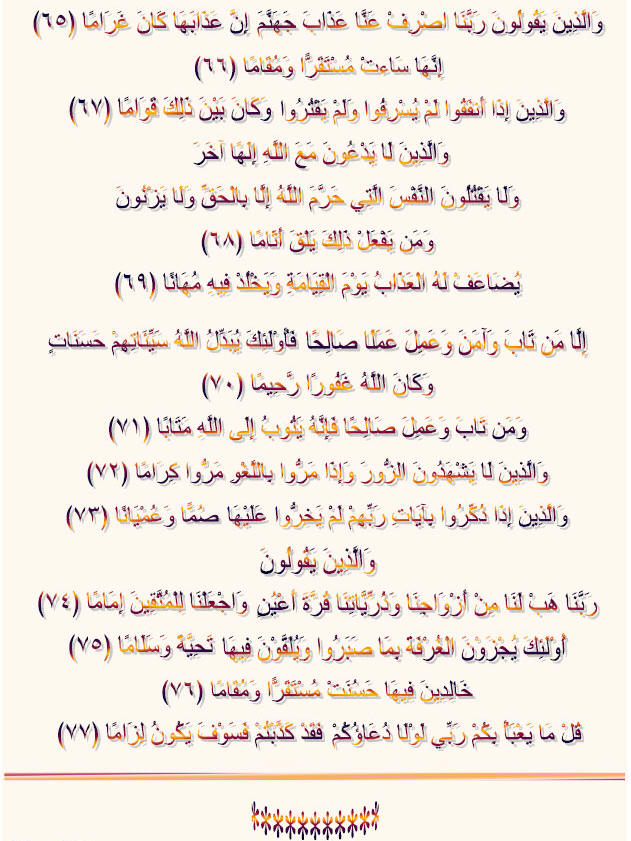 وَالَّذِينَ يَقُولُونَ رَبَّنَا اصْرِفْ عَنَّا عَذَابَ جَهَنَّمَ إِنَّ عَذَابَهَا كَانَ غَرَامًا (٦٥)
إِنَّهَا سَاءتْ مُسْتَقَرًّا وَمُقَامًا (٦٦)
وَالَّذِينَ إِذَا أَنفَقُوا لَمْ يُسْرِفُوا وَلَمْ يَقْتُرُوا وَكَانَ بَيْنَ ذَلِكَ قَوَامًا (٦٧)
وَالَّذِينَ لَا يَدْعُونَ مَعَ اللَّهِ إِلَهًا آخَرَ
وَلَا يَقْتُلُونَ النَّفْسَ الَّتِي حَرَّمَ اللَّهُ إِلَّا بِالْحَقِّ وَلَا يَزْنُونَ
وَمَن يَفْعَلْ ذَلِكَ يَلْقَ أَثَامًا (٦٨)
يُضَاعَفْ لَهُ الْعَذَابُ يَوْمَ الْقِيَامَةِ وَيَخْلُدْ فِيهِ مُهَانًا (٦٩)
إِلَّا مَن تَابَ وَآمَنَ وَعَمِلَ عَمَلًا صَالِحًا فَأُوْلَئِكَ يُبَدِّلُ اللَّهُ سَيِّئَاتِهِمْ حَسَنَاتٍ
وَكَانَ اللَّهُ غَفُورًا رَّحِيمًا (٧٠)
وَمَن تَابَ وَعَمِلَ صَالِحًا فَإِنَّهُ يَتُوبُ إِلَى اللَّهِ مَتَابًا (٧١)
وَالَّذِينَ لَا يَشْهَدُونَ الزُّورَ وَإِذَا مَرُّوا بِاللَّغْوِ مَرُّوا كِرَامًا (٧٢)
وَالَّذِينَ إِذَا ذُكِّرُوا بِآيَاتِ رَبِّهِمْ لَمْ يَخِرُّوا عَلَيْهَا صُمًّا وَعُمْيَانًا (٧٣)
وَالَّذِينَ يَقُولُونَ
رَبَّنَا هَبْ لَنَا مِنْ أَزْوَاجِنَا وَذُرِّيَّاتِنَا قُرَّةَ أَعْيُنٍ وَاجْعَلْنَا لِلْمُتَّقِينَ إِمَامًا (٧٤)
أُوْلَئِكَ يُجْزَوْنَ الْغُرْفَةَ بِمَا صَبَرُوا وَيُلَقَّوْنَ فِيهَا تَحِيَّةً وَسَلَامًا (٧٥)
خَالِدِينَ فِيهَا حَسُنَتْ مُسْتَقَرًّا وَمُقَامًا (٧٦)
قُلْ مَا يَعْبَأُ بِكُمْ رَبِّي لَوْلَا دُعَاؤُكُمْ فَقَدْ كَذَّبْتُمْ فَسَوْفَ يَكُونُ لِزَامًا (٧٧)